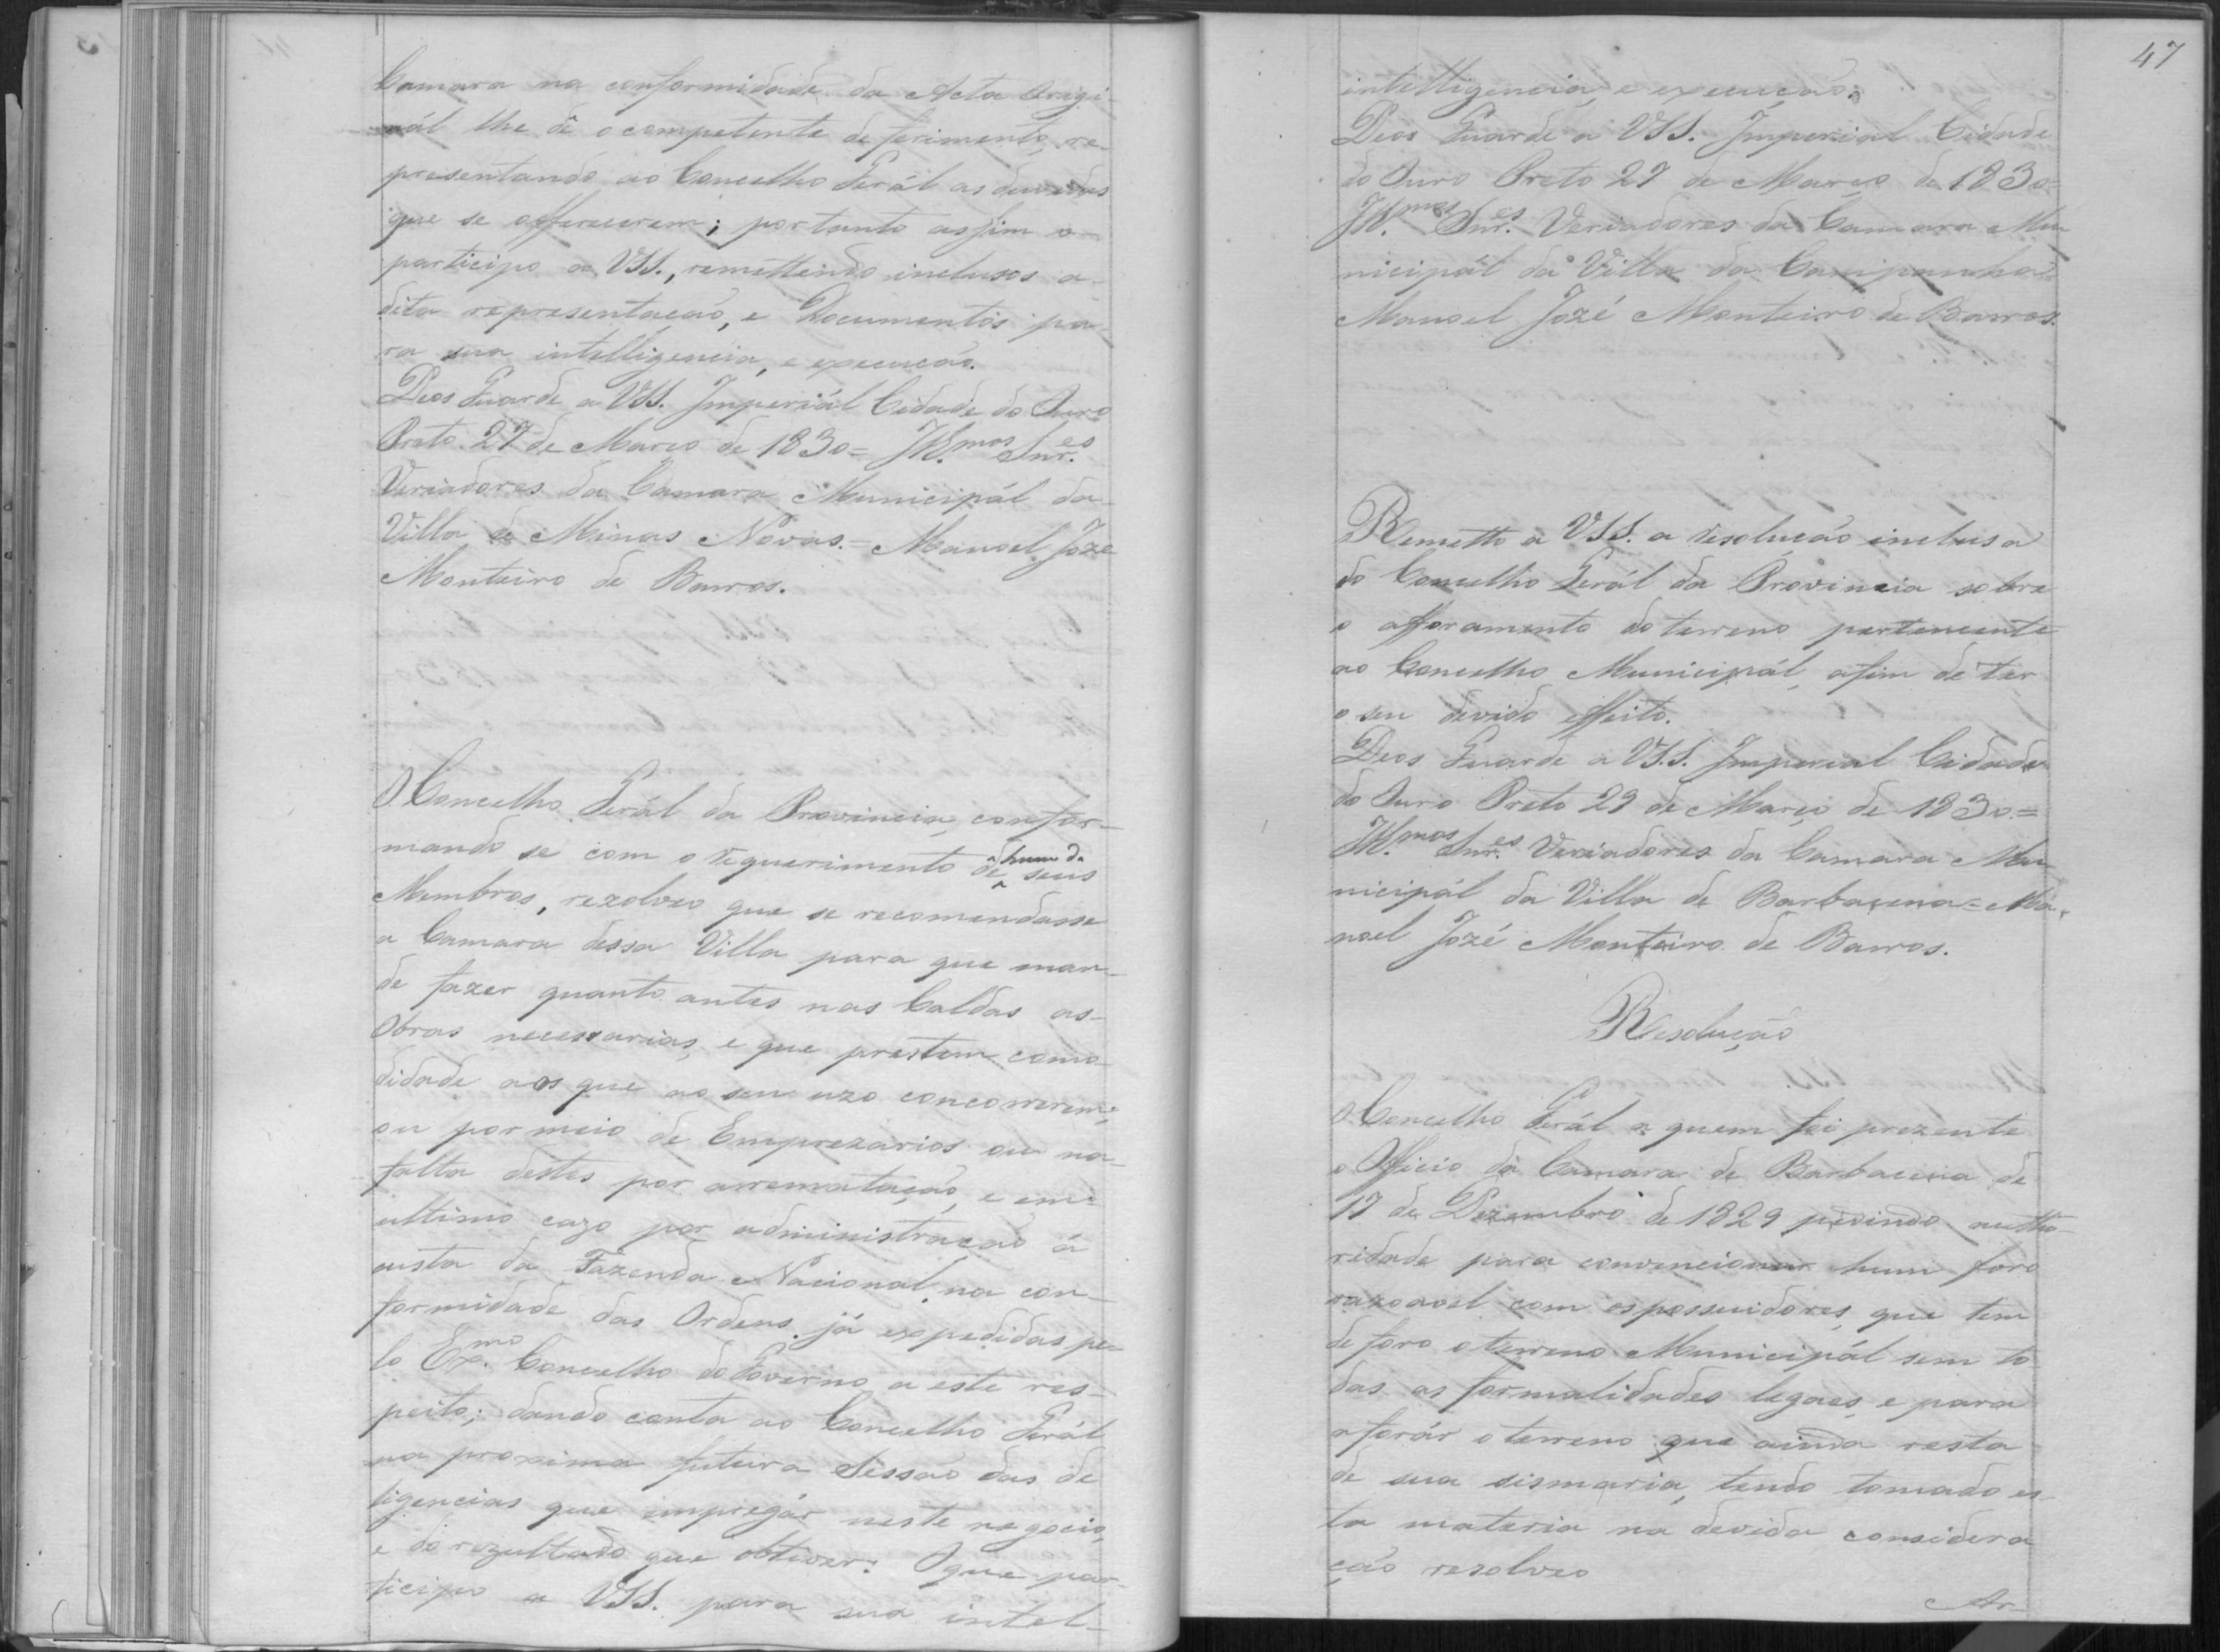 Camara na conformidade da Acta Origi-
nál lhe dê o competente deferimento, re-
presentando ao Concelho Gerál as duvidas
que se offerecerem; portanto assim o
participo a VSS., remettendo inclusos a
dita representação, e Documentos pa-
ra sua intelligencia, e execução.
Deos Guarde a VSS. Imperiál Cidade do Ouro
Preto 27 de Março de 1830 = Ill.mos Snr.es
Veriadores da Camara Municipál da
Villa de Minas Novas. = Manoel Joze
Monteiro de Barros.
O Concelho Gerál da Provincia, confor-
mando se com o requerimento de hum de seus
Membros, rezolveo que se recomendasse
a Camara dessa Villa para que man-
de fazer quanto antes nas Caldas as-
Obras necessarias, e que prestem como-
didade aos que ao seu uzo concorrerem;
ou por meio de Emprezarios ou na-
falta destes por arrematação, e em
ultimo cazo por administração á
custa da Fazenda Nacional, na con-
formidade das Ordens já expedidas pe-
lo Ex.mo Concelho do Governo a este res-
peito; dando conta ao Concelho Gerál
na proxima futura Sessão das de
ligencias que empregár neste negocio,
e do rezultado que obtiver: O que par-
ticipo a VSS. para sua intel-
47
intelligencia, e execução.
Deos Guarde a VSS. Imperial Cidade
do Ouro Preto 27 de Março de 1830 =
Ill.mos Snr.es Veriadores da Camara Mu
nicipál da Villa da Campanha =
Manoel Jozé Monteiro de Barros.
Remetto a VSS. a resolução inclusa
do Concelho Gerál da Provincia sobre
o afforamento do terreno pertencente
ao Concelho Municipál, afim de ter
o seu devido effeito.
Deos Guarde a VSS. Imperial Cidade
do Ouro Preto 29 de Março de 1830 =
Ill.mos Snr.es Veriadores da Camara Mu
nicipál da Villa de Barbacena = Ma-
noel Jozé Monteiro de Barros.
Resolução
O Concelho Gerál a quem foi prezente
o Officio da Camara de Barbacena de
17 de Dezembro de 1829 pedindo autho-
ridade para convencionar hum foro
razoavel com os possuidores, que tem
de foro o terreno Municipál sem to
das as formalidades legaes, e para
aforár o terreno que ainda resta
de sua sismaria, tendo tomado es-
ta materia na devida considera
ção resolveo
Ar-